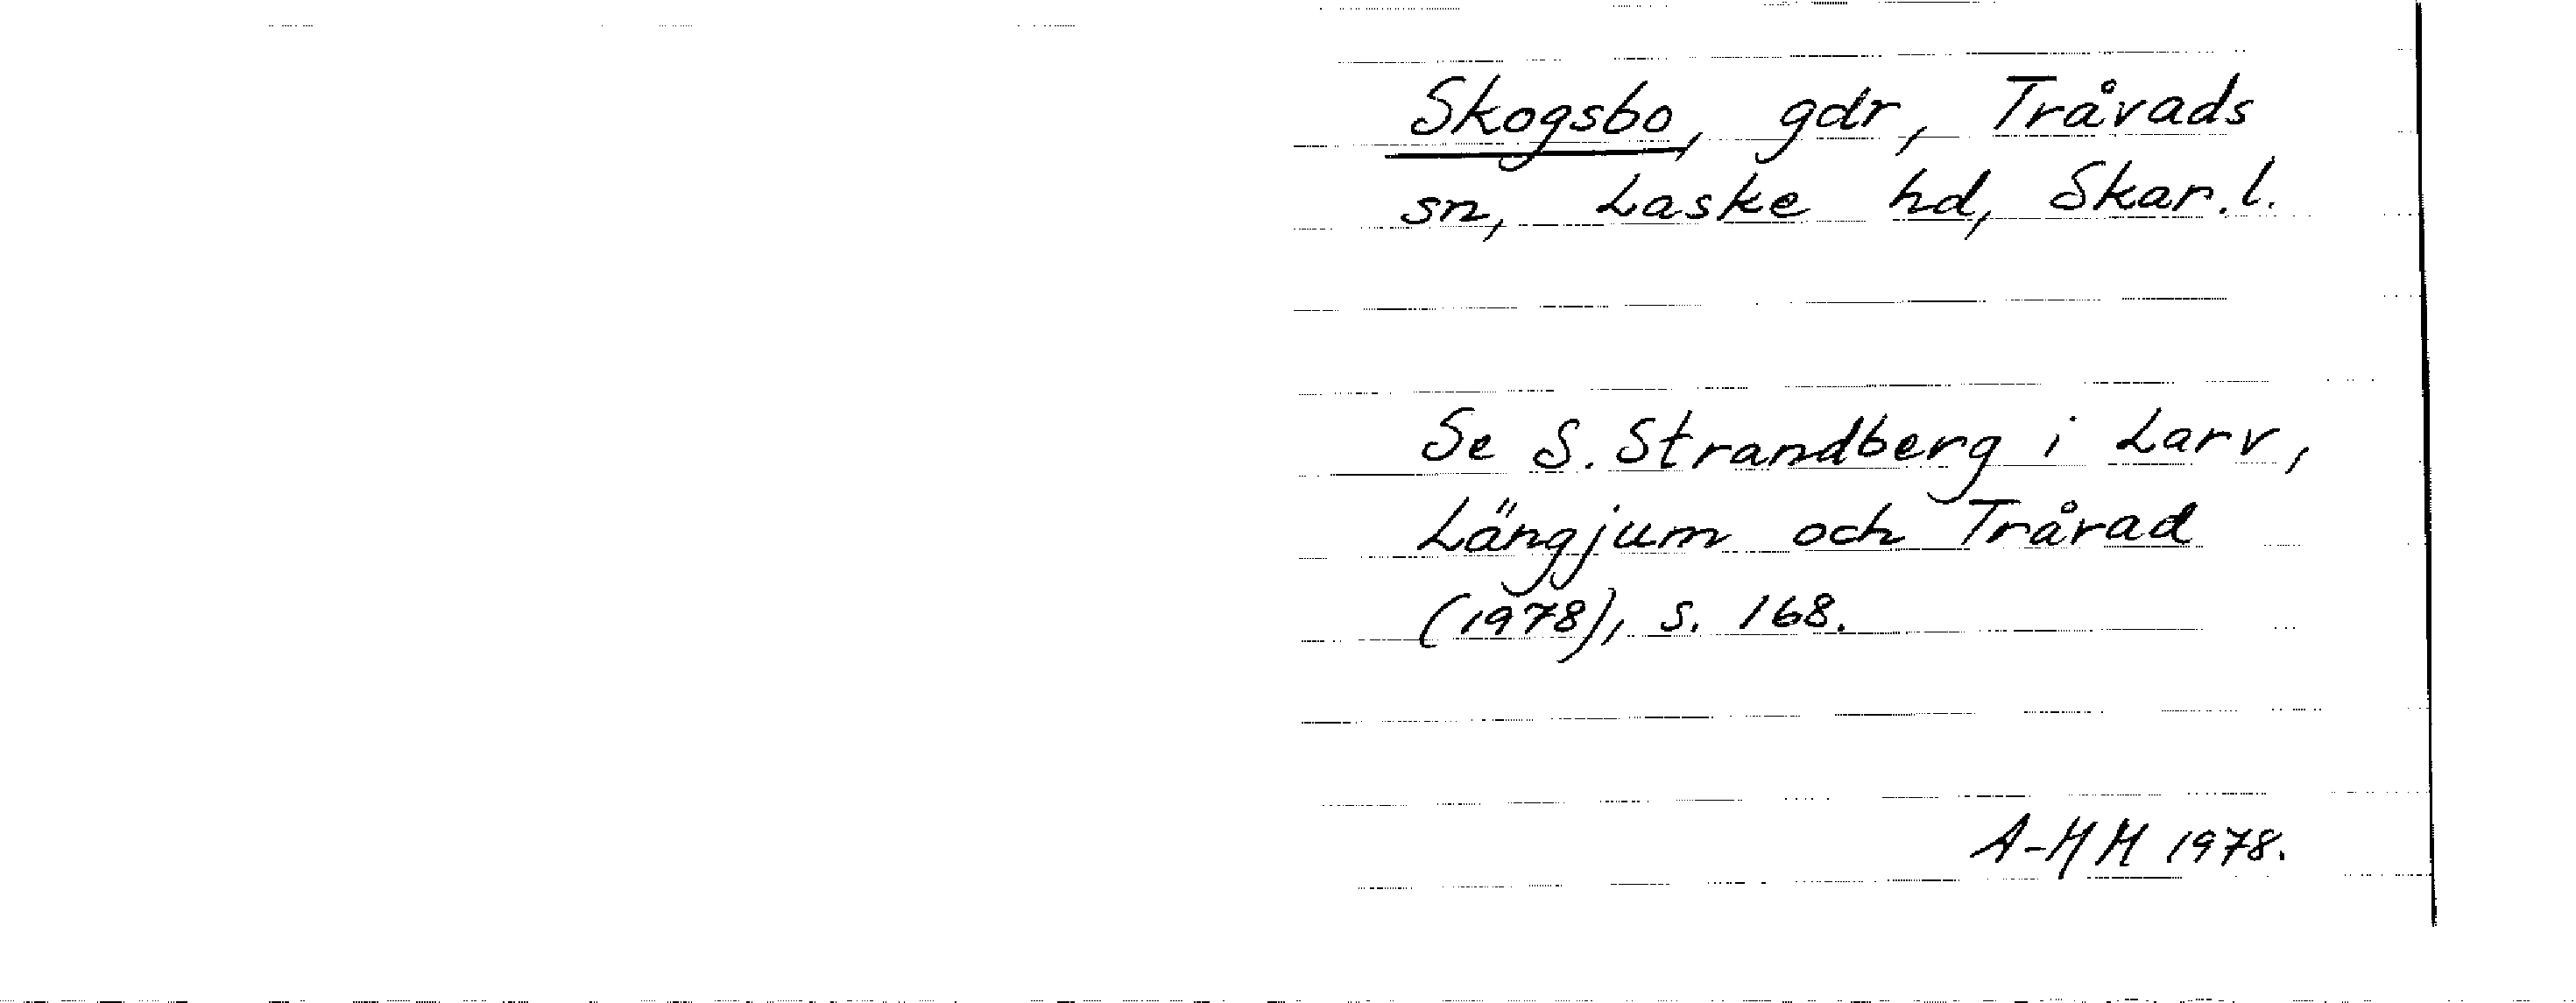 Skogsbo, gdr, Tråvads
sn, Laske hd, Skar.l.
Se S. Strandberg i Larv,
Längjum och Tråvad
(1978), s. 168.
A-MM 1978.